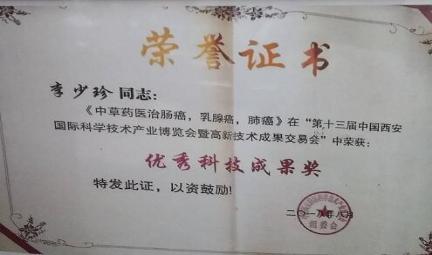 荣誉证书
李少珍 同志：
《中草药医治肠癌，乳腺癌，肺癌》在“第十三届中国西安
国际科学技术产业博览会暨高新技术成果交易会”中荣获：
优秀科技成果奖
特发此证，以资鼓励！
组委会